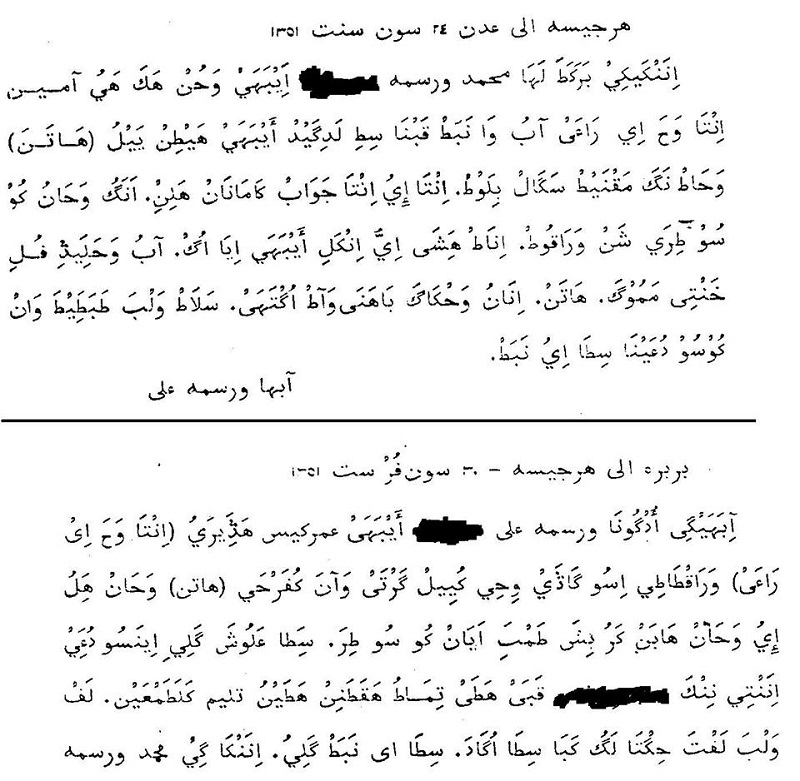 هرجيسه الى عدن ٢٤ سون سنت ١٣٥١
اِنَنْكَيْكِيْ بَرَكَطَ لَهَا محمد ورسمه اَيْبَهَيْ وَحُنْ هَكَ هَيُ آمــيــن
اِنْتَا وَحَ اِي رَاعَىْ آبُ وَا نَبَطْ قَبْنَا سِطِ لَدِگَيْدْ أَيْبَهَيْ هَيْطِنْ يَيْلُ (هَــاتَــنَ)
وَحَاطْ نَگَ مَقْنَيْطْ سَگَالْ بِلَوْطْ. اِنْتَا إِيُ اِنْتَا جَوَابْ كَامَانَانْ هَلِنْ. اَنَگُ وَحَانْ كُوْ
سُوْ طِرَي شَنْ وَرَاقُوطْ. اِنَاطْ هَشَى اِيَّ اِنْكَلِ أَيْبَهَي اِيَا اُگْ. آبُ وَحَلِيَدْ فُــلِ
خَنْتِى مَمُوْگَ. هَاتَنْ. اِنَانْ وَحْكَاگَ بَاهَنَى وَآطْ اُگْتَهَىْ. سَلَاطْ وَلْبَ طَبَطَيْطَ وَانْ
كُوْسُوْ دُعَيْنَا سِطَا اِيُ نَبَطْ.
آبها ورسمه على
بربره الى هرجيسه – ٣٠ سون فُرْ ست ١٣٥١
آبَهَيْگِى أَدْگُونَا ورسمه على أَيْبَهَىْ عمركيس هَدَّيرَيُ (اِنْتَا وَحَ اِىْ
رَاعَىْ) وَرَاقْطَاطِي اِسُو گَادَيْ وِحِي كُيِيلْ گَرْتَىْ وَآنَ كُفَرْحَي (هاتن) وَحَانْ هَلُ
إِيُ وَحَآنْ هَابَنْ كَرُ بِشَ طَمْبَ اَيَانْ كُو سُو طِرَ. سِطا عَلُوشَ گَلِي اِينَسُو دُعَيْ
اِنَنْتِي نِنْكَ قَبَىْ هَطَىْ تِمَــاطُ هَقَطَنِنْ هَطَيْنُ تليم كَلَطَمْعَيْن. لَفْ
وَلْبَ لَفْتَ حِگْتَا لَگُ كَبَا سِطَا اُگَادَ. سِطَا اى نَبَطْ گَلِيُ. اِنَنْكَا گِيُ محمد ورسمه